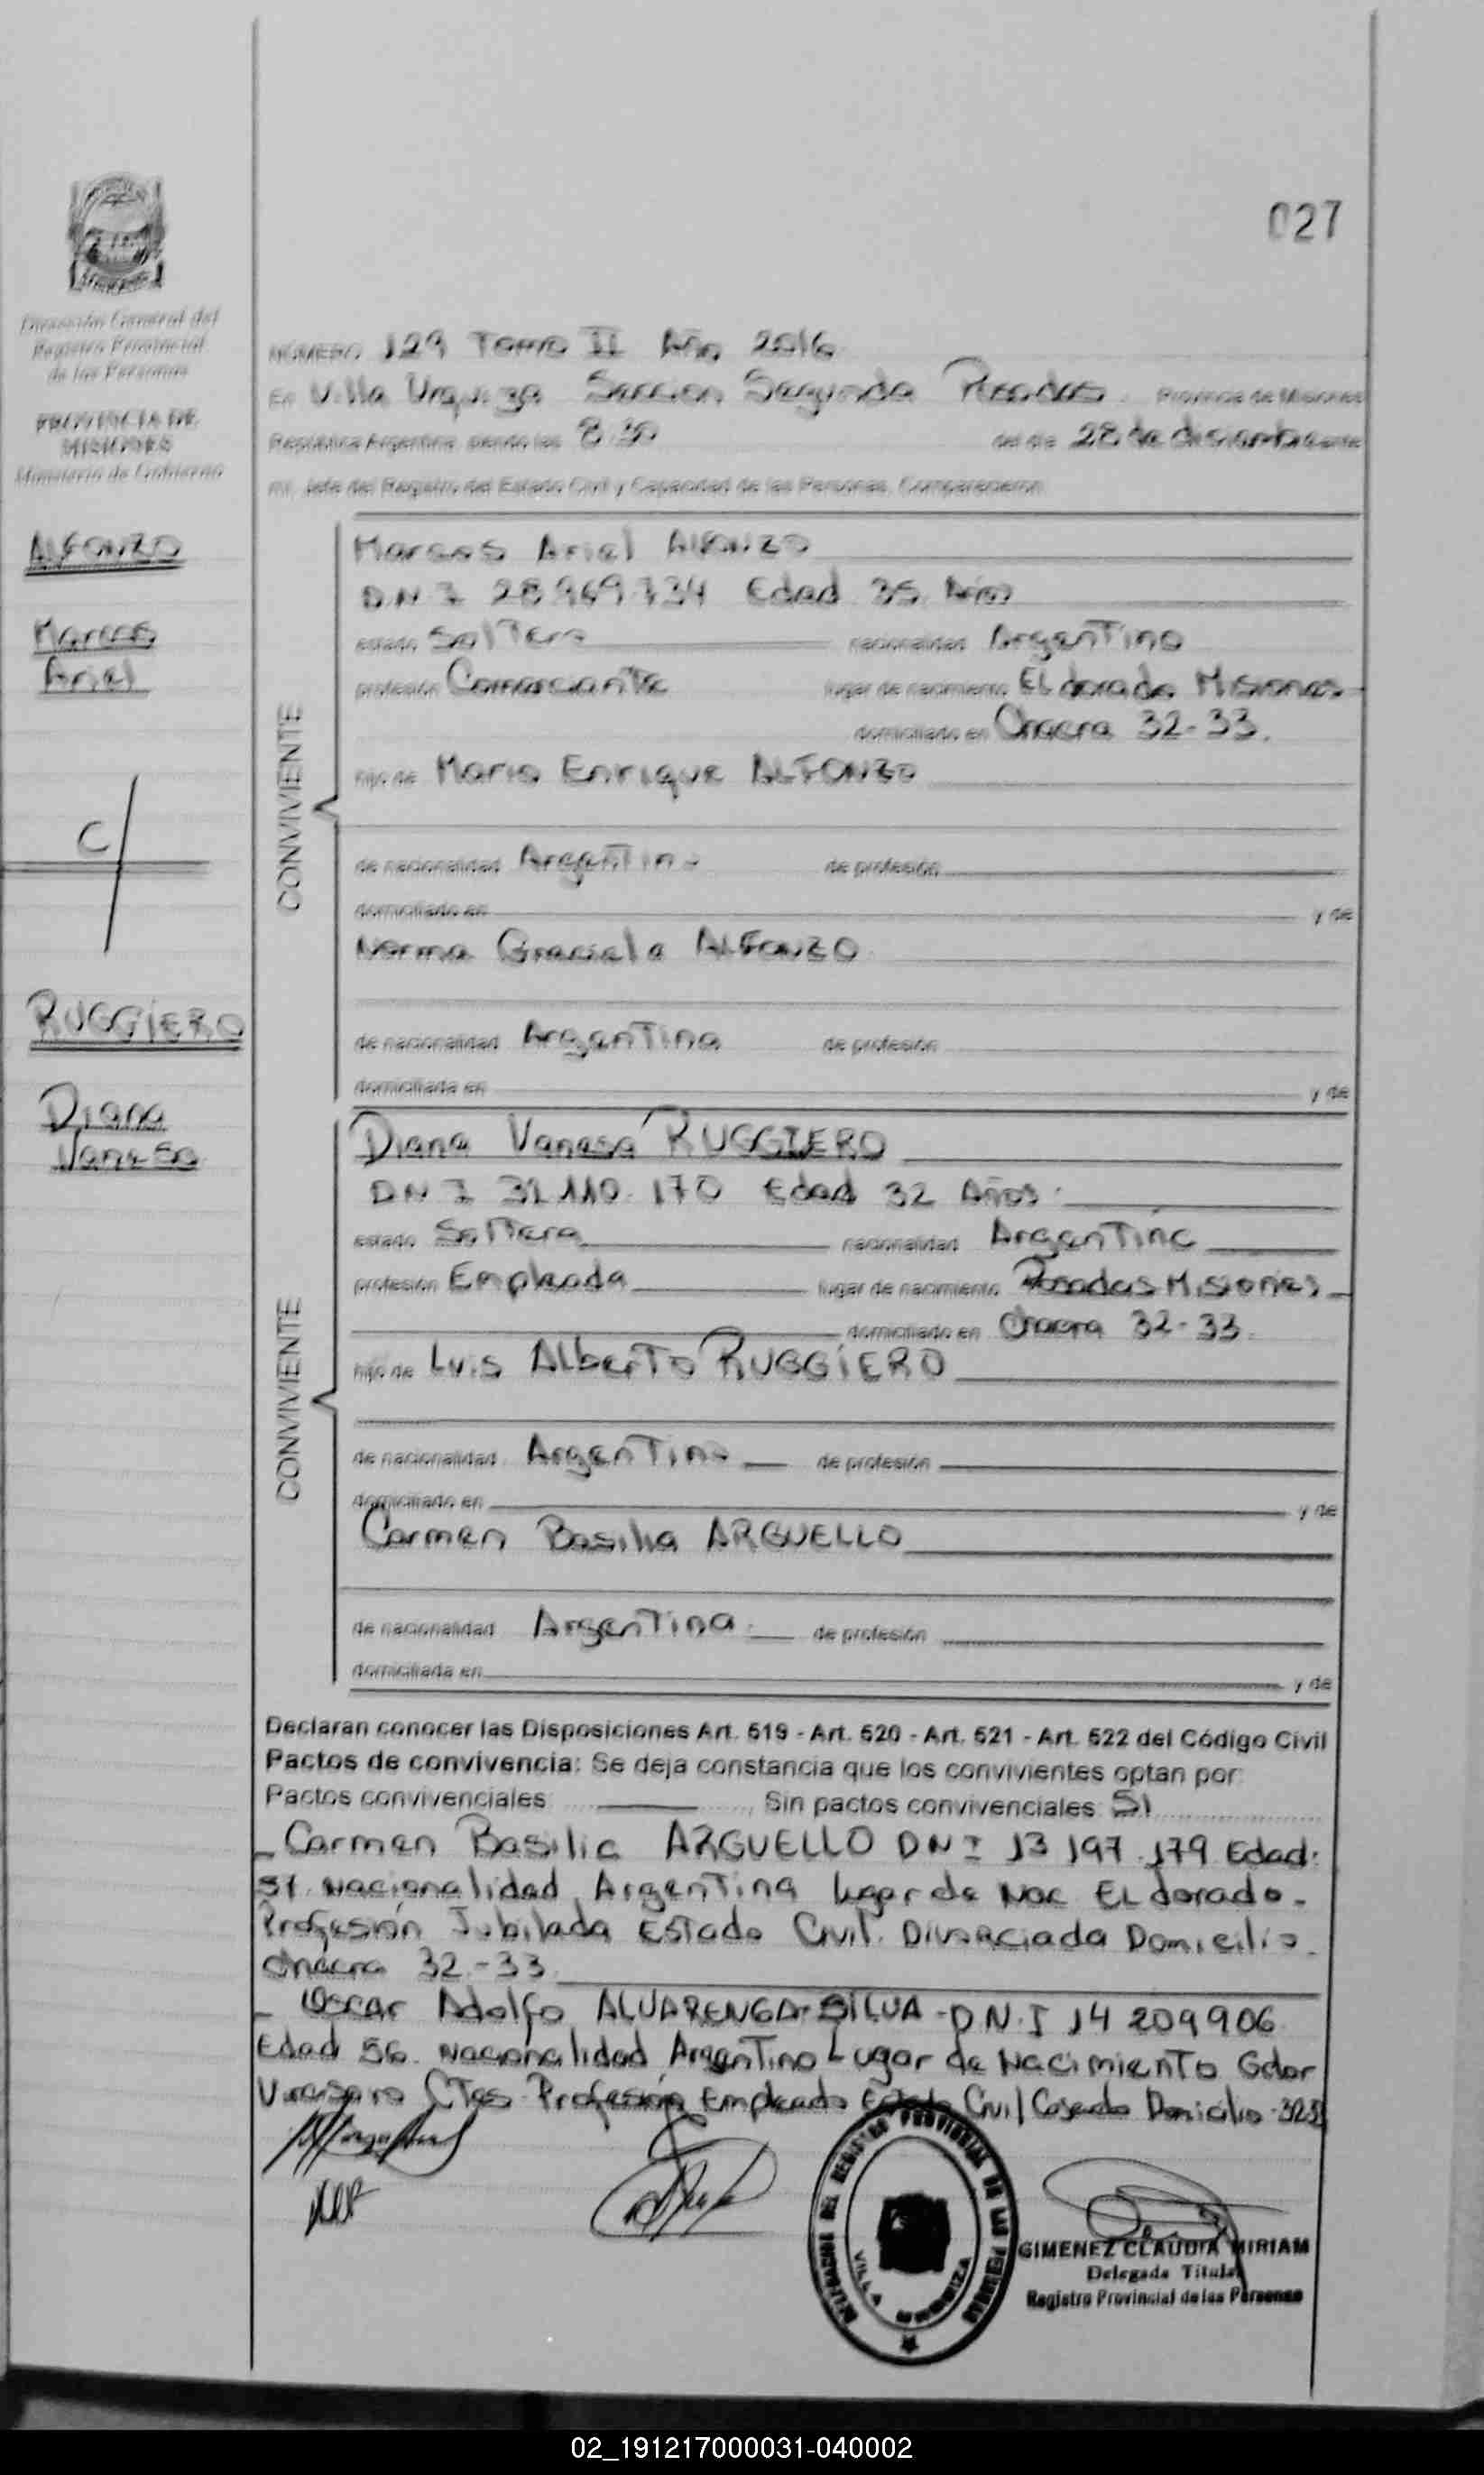 027
Dirección General del
Registro Provincial
de las Personas
PROVINCIA DE
MISIONES
Ministerio de Gobierno
ALFONZO
Marcos
Ariel
C/
RUGGIERO
Diana
Vanesa
NÚMERO 129 Tomo II Año 2016
En Villa Urquiza Seccion Segunda Posadas. Provincia de Misiones
República Argentina, siendo las 8:30 del día 28 de diciembre ante
mi, Jefe del Registro del Estado Civil y Capacidad de las Personas, Comparecieron
CONVIVIENTE
Marcos Ariel ALFONZO
DNI 28.969.734 Edad 35 Años
estado Soltero nacionalidad Argentino
profesión Comerciante lugar de nacimiento El dorado Misiones
domiciliado en Chacra 32-33.
hijo de Mario Enrique ALFONZO
de nacionalidad Argentino de profesión
domiciliado en y de
Norma Graciela ALFONZO
de nacionalidad Argentina de profesión
domiciliada en y de
CONVIVIENTE
Diana Vanesa RUGGIERO
DNI 31.110.170 Edad 32 Años.
estado Soltera nacionalidad Argentina
profesión Empleada lugar de nacimiento Posadas Misiones
domiciliado en Chacra 32-33.
hijo de Luis Alberto RUGGIERO
de nacionalidad Argentino de profesión
domiciliado en y de
Carmen Basilia ARGUELLO
de nacionalidad Argentina. de profesión
domiciliada en y de
Declaran conocer las Disposiciones Art. 519 - Art. 520 - Art. 521 - Art. 522 del Código Civil
Pactos de convivencia: Se deja constancia que los convivientes optan por:
Pactos convivenciales Sin pactos convivenciales: SI
- Carmen Basilia ARGUELLO DNI 13.197.179 Edad:
Nacionalidad Argentina lugar de Nac El dorado -
Profesión Jubilada Estado Civil. Divorciada Domicilio.
Chacra 32-33
- Oscar Adolfo ALVARENGA SILVA - D.N.I 14 209906
Edad 56. Nacionalidad Argentino Lugar de Nacimiento Gdor
Virasoro Ctes. Profesión Empleado Estado Civil Casado Domicilio
DELEGACION DEL REGISTRO PROVINCIAL DE LAS PERSONAS
VILLA URQUIZA
GIMENEZ CLAUDIA MIRIAM
Delegada Titular
Registro Provincial de las Personas
02_191217000031-040002